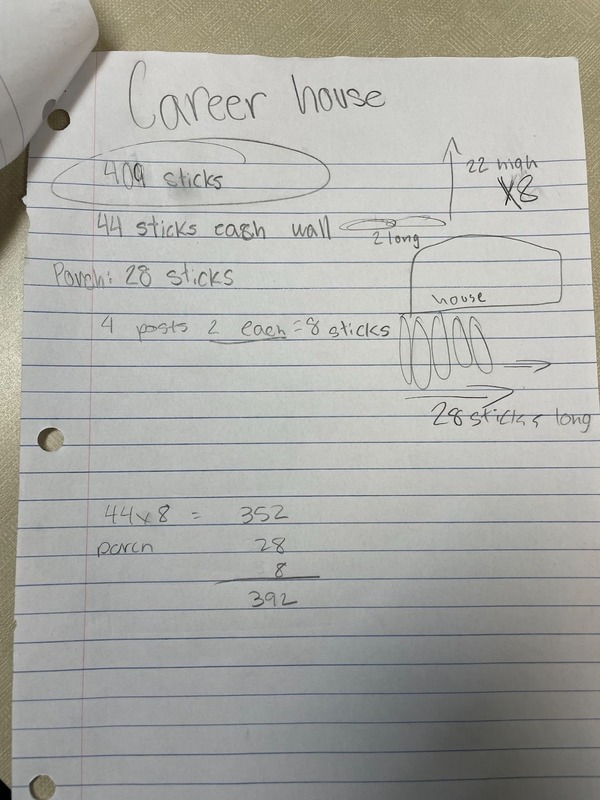 Career house
409 sticks
22 high
X8
44 sticks each wall
2 long
Porch: 28 sticks
house
4 posts 2 each = 8 sticks
28 sticks long
44x8 = 352
porch 28
8
392